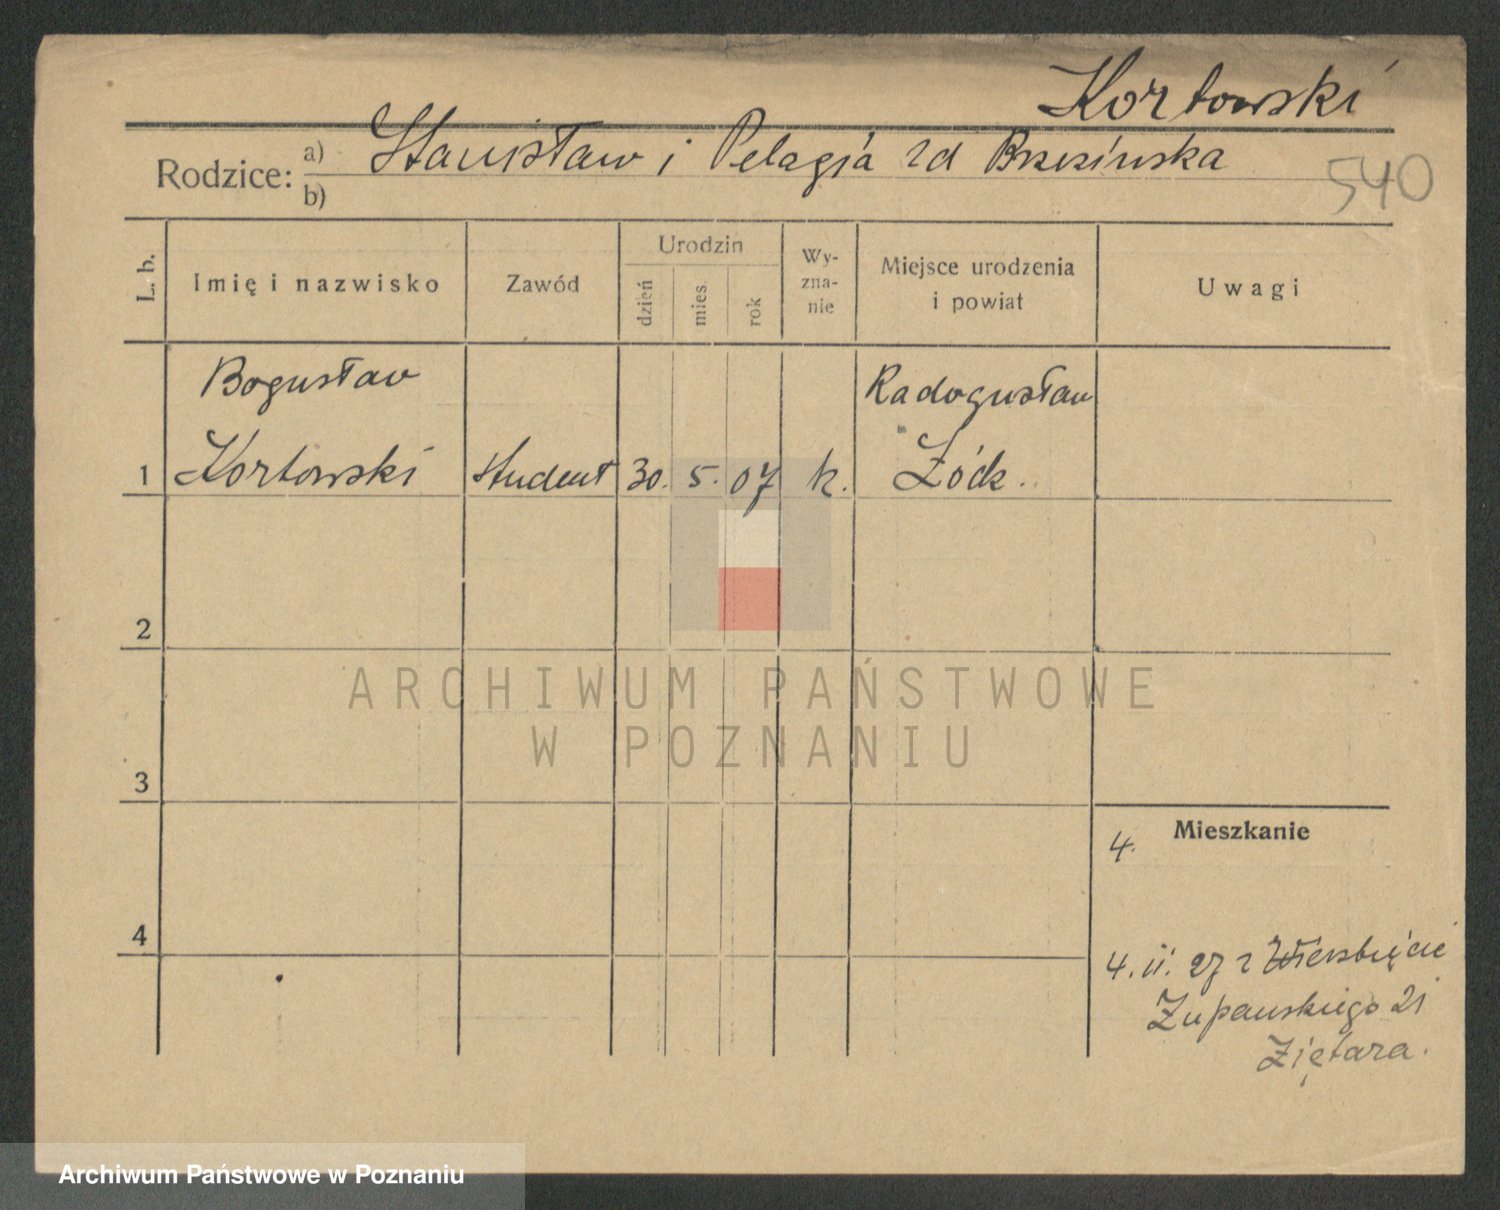 Kortowski
Rodzice: a) Stanisław i Pelagia zd Brzezinska
b)
540
L. b. Imię i nazwisko Zawód Urodzin dzień mies. rok Wy-zna-nie Miejsce urodzenia i powiat Uwagi
Bogusław Radogusław
1 Kortowski student 30. 5. 07 k. Łódz.
2
3
Mieszkanie
4.
4
4. II. 27 z Wierzbięcic
Zupanskiego 21
Ziętara.
ARCHIWUM PAŃSTWOWE
W POZNANIU
Archiwum Państwowe w Poznaniu